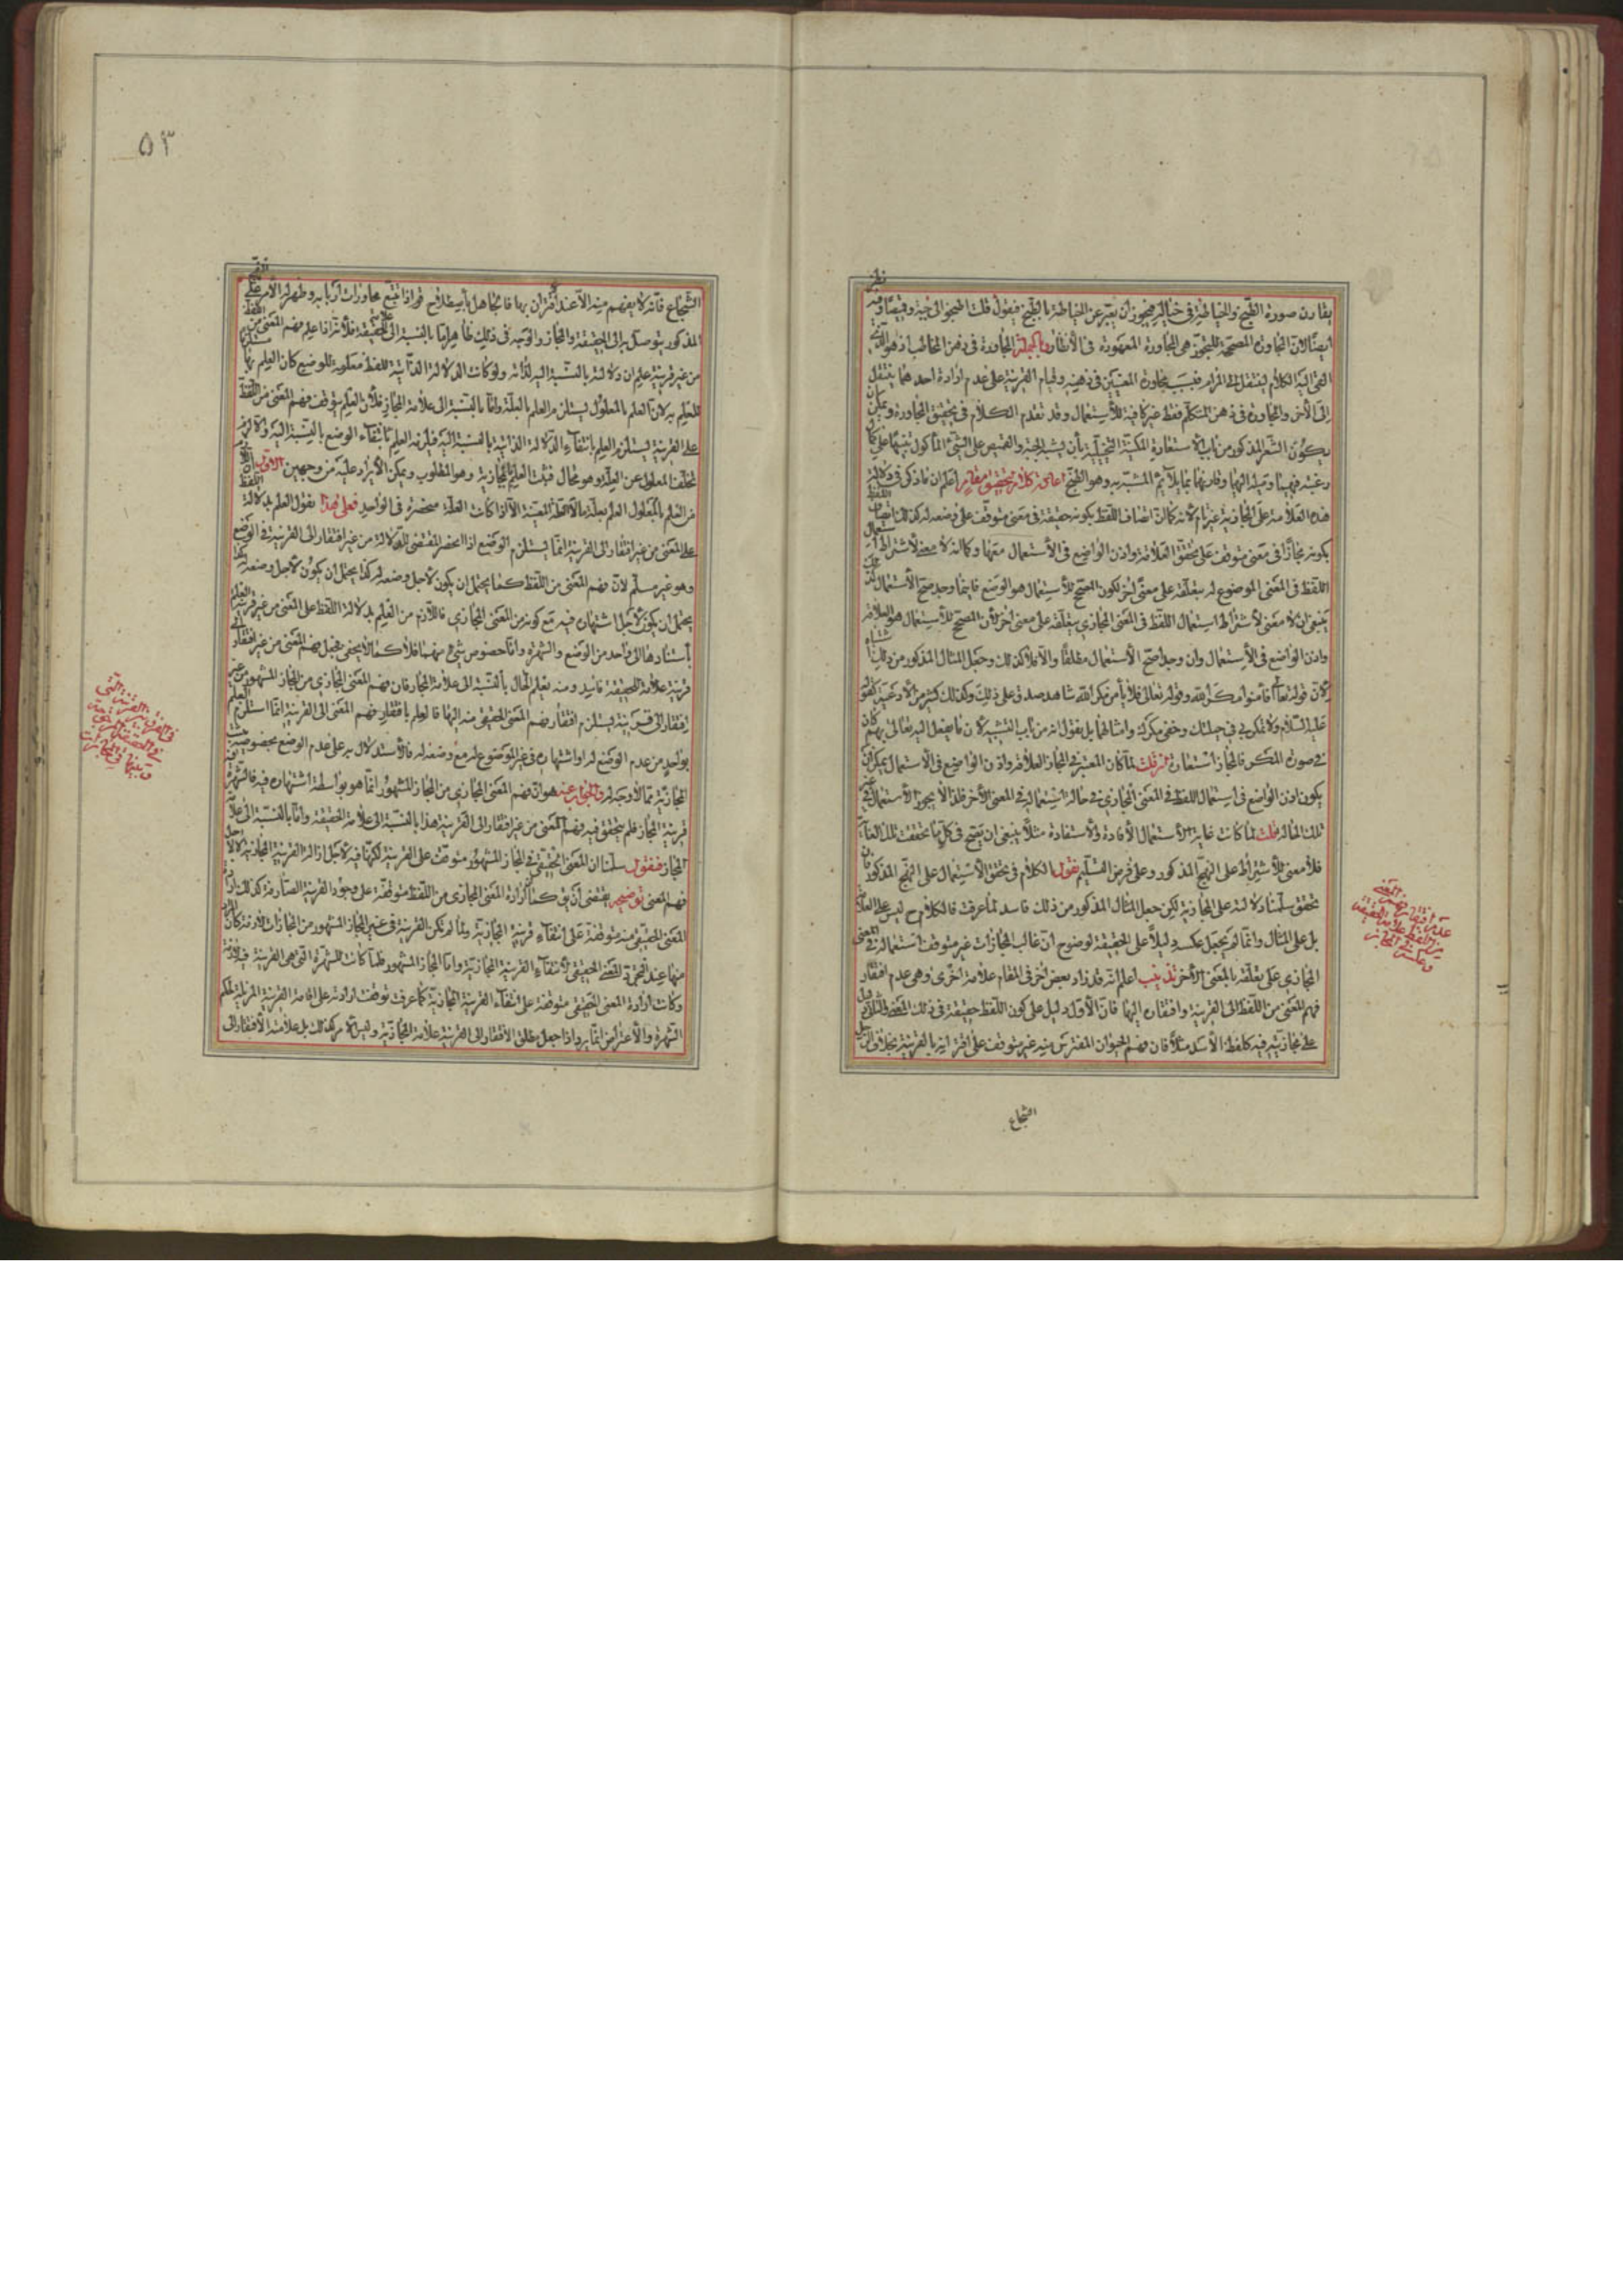 يقارن صورة الطبخ والخياطة في خياله فيجوز ان يعبر عن الخياطة بالطبخ فيقول قلت اطبخوا لي جبة وقميصا وفيه نظر
ايضا لان المجاورة المصححة للتجوز هي المجاورة المعهودة في الأنظار وبالجملة المجاورة في ذهن المخاطب اذ هو الذي
القى اليه الكلام لينتقل الى المرام فبسبب تجاور المعنيين في ذهنه وقيام القرينة على عدم ارادة احدهما ينتقل
الى الآخر والتجاور في ذهن المتكلم فقط غير كافية للأستعمال وقد تقدم الكلام في تحقيق المجاورة ويمكن ان
يكون الشعر المذكور من باب الاستعارة المكنية التخييلية بأن يشبه الجبة والقميص على الشيء المأكول تنبيها على كمال
رغبته فيهما وميله اليهما وقارنهما بما يلائم المشبه به وهو الطبخ تحقيق مقام اعلم ان ما ذكر في دلالة
هذه العلامة على المجازية غير تام لانه كما ان اتصاف اللفظ بكونه حقيقة في معنى متوقف على وضعه له كذلك اتصاف اللفظ
بكونه مجازا في معنى متوقف على تحقق العلاقة واذن الواضع في الأستعمال معها وكما انه لا معنى لاشتراط استعمال
اللفظ في المعنى الموضوع له بتعلقه على معنى آخر لكون المصحح للأستعمال هو الوضع فاينما وجد صح الأستعمال كذلك
ينبغي ان لا معنى لأشتراط استعمال اللفظ في المعنى المجازي بتعلقه على معنى آخر لأن المصحح للأستعمال هو العلاقة
واذن الواضع في الأستعمال وان وجد صح الأستعمال مطلقا والا فلا كذلك وجعل المثال المذكور من ذلك اشتباه
لان قوله تعالى أفأمنوا مكر الله وقوله تعالى فلا يأمن مكر الله شاهد صدق على ذلك وكذلك كثير من الأدعية كقوله
عليه السلام ولا تمكر بي في حيلتك وخفي مكرك وامثالها بل نقول انه من باب التشبيه لأن ما يفعل الله تعالى بهم كان
في صورة المكر فالمجاز استعارة فان قلت لما كان المعتبر في المجاز العلاقة واذن الواضع في الأستعمال يمكن ان
يكون اذن الواضع في استعمال اللفظ في المعنى المجازي في حالة استعماله في المعنى الآخر فلذا لا يجوز الأستعمال في غير
تلك الحالة قلت لما كانت غاية الأستعمال الأفادة والأستفادة مثلا ينبغي ان يصح في كل ما تحققت تلك الغاية
فلا معنى للأشتراط على النهج المذكور وعلى فرض التسليم نقول الكلام في تحقق الأستعمال على النهج المذكور فان
تحقق سلمنا دلالته على المجازية لكن جعل المثال المذكور من ذلك فاسد لما عرفت فالكلام ح ليس على العلامة
بل على المثال وانما لم يجعل عكسه دليلا على الحقيقة لوضوح ان غالب المجازات غير متوقف استعماله في المعنى
المجازي على تعلقه بالمعنى الآخر تذنيب اعلم انه قد زاد بعض آخر في المقام علامة اخرى وهي عدم افتقار
فهم المعنى من اللفظ الى القرينة وافتقاره اليها فان الأول دليل على كون اللفظ حقيقة في ذلك المعنى والثاني دليل
على مجازيته فيه كلفظ الأسد مثلا فان فهم الحيوان المفترس منه غير متوقف على اقترانه بالقرينة بخلاف الرجل
الشجاع
عدم افتقار فهم المعنى
من اللفظ علامة الحقيقة
وعكسه المجاز
٥٣
الشجاع فانه لا يفهم منه الا عند اقترانه بها فالجاهل بأصطلاح قوم اذا تتبع محاورات اربابه وظهر له الأمر على النهج
المذكور يتوصل به الى الحقيقة والمجاز والوجه في ذلك ظاهر اما بالنسبة الى علامة الحقيقة فلأنه اذا علم فهم المعنى من اللفظ
من غير قرينة علم ان دلالته بالنسبة اليه لذاته ولو كانت الدلالة الذاتية للفظ معلولة للوضع كان العلم بها مستلزما
للعلم به لأن العلم بالمعلول يستلزم العلم بالعلة واما بالنسبة الى علامة المجاز فلأن العلم بتوقف فهم المعنى من اللفظ
على القرينة يستلزم العلم بأنتفاء الدلالة الذاتية بالنسبة اليه فيلزمه العلم بأنتفاء الوضع بالنسبة اليه والا لزم
تخلف المعلول عن العلة وهو محال فثبت العلم بالمجازية وهو المطلوب ويمكن الأيراد عليه من وجهين الأول انه لا يلزم
من العلم بالمعلول العلم بعلته بالعلة المعينة الا اذا كانت العلة منحصرة في الواحد فعلى هذا نقول العلم بدلالة اللفظ
على المعنى من غير افتقار الى القرينة انما يستلزم الوضع اذا انحصر المقتضى للدلالة من غير افتقار الى القرينة في الوضع
وهو غير مسلم لان فهم المعنى من اللفظ كما يحتمل ان يكون لأجل وضعه له كذا يحتمل ان يكون لأجل وضعه
يحتمل ان يكون لأجل اشتهاره فيه مع كونه من المعنى المجازي فاللازم من العلم بدلالة اللفظ على المعنى من غير قرينة العلم
بأستنادها الى واحد من الوضع والشهرة واما خصوص شيء منهما فلا كما لا يخفى فجعل فهم المعنى من غير افتقار الى
قرينة علامة للحقيقة فاسد ومنه يعلم الحال بالنسبة الى علامة المجاز فان فهم المعنى المجازي من المجاز المشهور من غير
افتقار الى قرينة يستلزم افتقار فهم المعنى الحقيقي منه اليها فالعلم بأفتقار فهم المعنى الى القرينة انما استلزم العلم
بواحد من عدم الوضع له او اشتهاره في غير الموضوع له مع وضعه له فالأستدلال به على عدم الوضع بخصوصه حتى يثبت
المجازية مما لا وجه له والجواب عنه هو ان فهم المعنى المجازي من المجاز المشهور انما هو بواسطة اشتهاره فيه فالشهرة
قرينة المجاز فلم يتحقق فيه فهم المعنى من غير افتقار الى القرينة هذا بالنسبة الى علامة الحقيقة واما بالنسبة الى علامة
المجاز فنقول سلمنا ان المعنى الحقيقي في المجاز المشهور متوقف على القرينة لكنها فيه لأجل ازالة القرينة المجازية لا لأجل
فهم المعنى توضيحه يقتضي ان يق كما ان ارادة المعنى المجازي من اللفظ متوقفة على وجود القرينة الصارفة كذلك ارادة
المعنى الحقيقي منه متوقفة على انتفاء قرينة المجازية ولما لم تكن القرينة في غير المجاز المشهور من المجازات لازمة كان
منها عند التجرد المعنى الحقيقي لأنتفاء القرينة المجازية واما المجاز المشهور فلما كانت الشهرة التي هي القرينة فيه لازمة
وكانت ارادة المعنى الحقيقي متوقفة على انتفاء القرينة المجازية كما عرفت توقفت ارادته على اقامة القرينة المزيلة لحكم
الشهرة والأعتراض انما يرد اذا جعل مطلق الأفتقار الى القرينة علامة المجازية وليس الأمر كذلك بل علامته الأفتقار الى
في الفرق بين القرينة التي
في الحقيقة المرجوحة
وبينها في المجازات